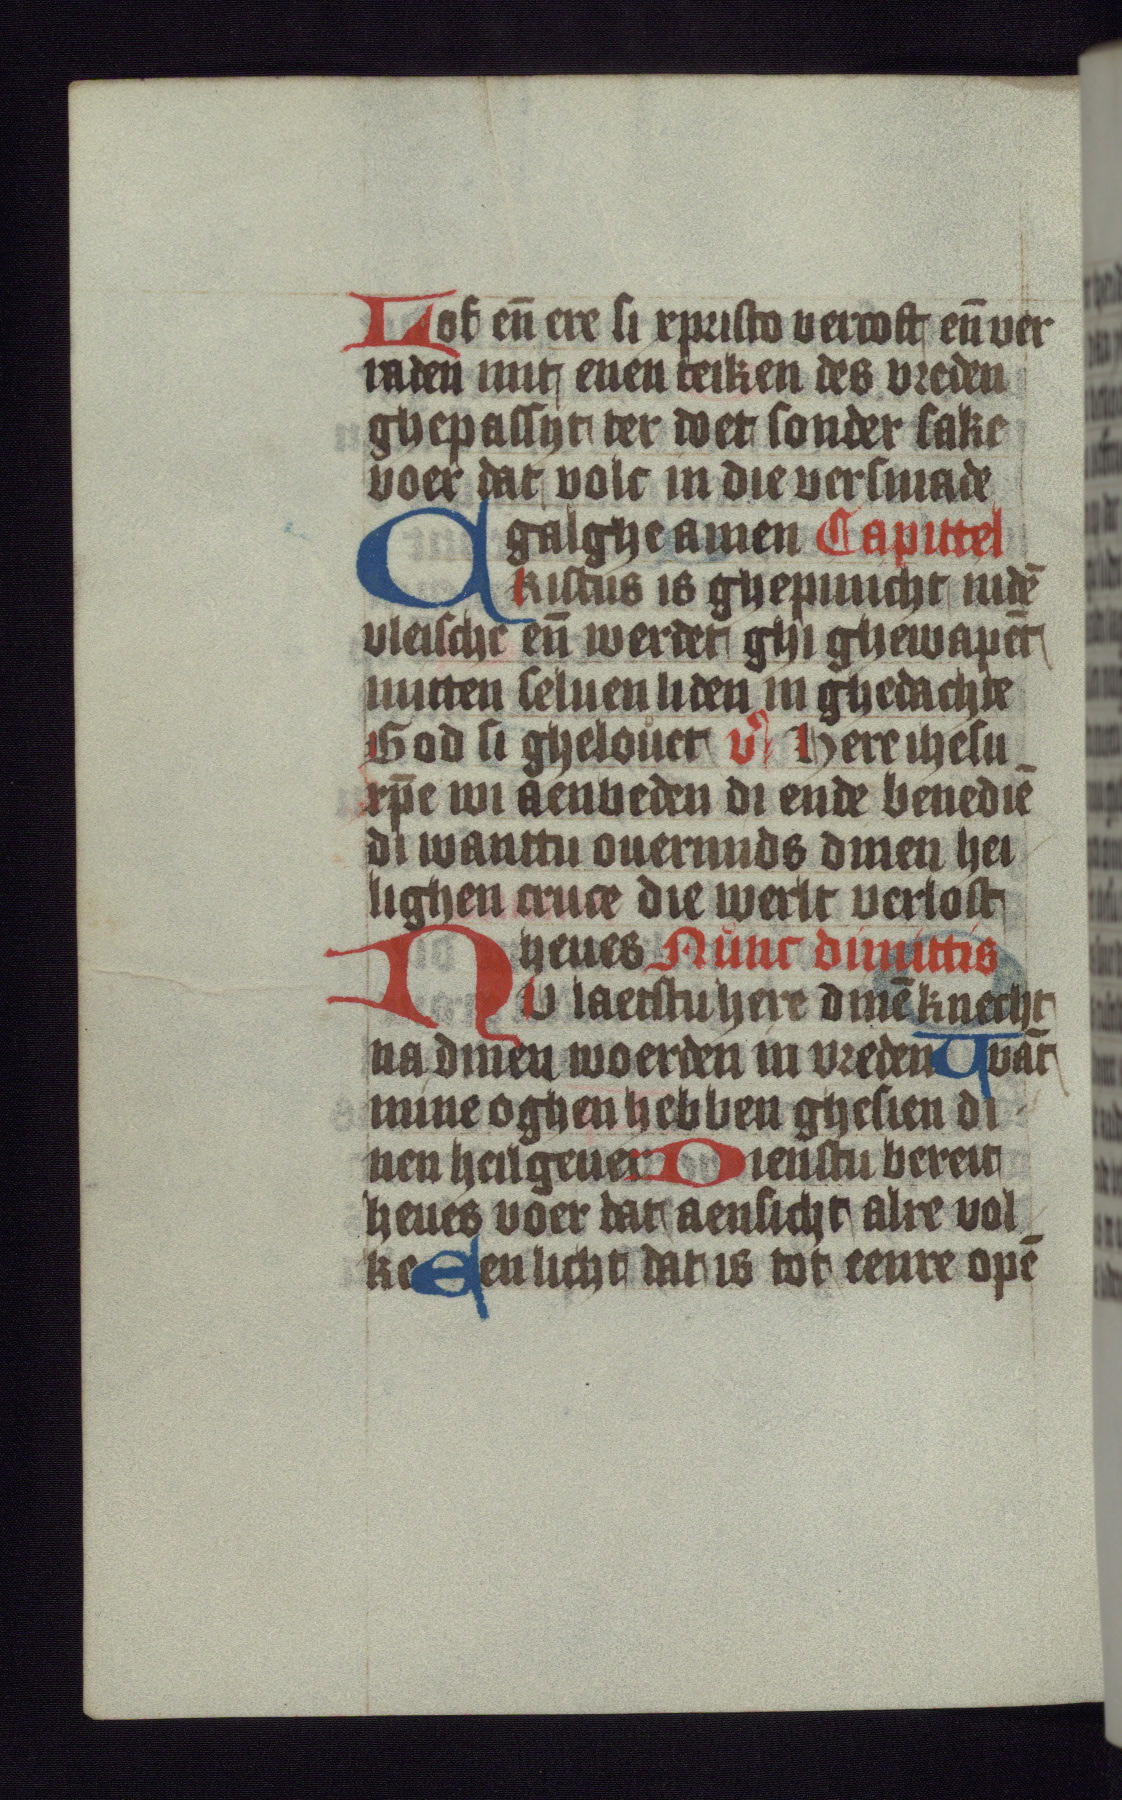 Lof en̄ ere si xpristo vercoft en̄ ver
raden mit enen teiken des vreden
ghepassyt ter doet sonder sake
voer dat volc in die versmade
galghe amen Capittel
Cristus is ghepinicht indē
vleische en̄ werdet ghi ghewapēt
mitten seluen liden in ghedachte
God si ghelouet v̓ Here ihesu
xp̄e wi aenbeden di ende benediē
di wanttu ouermids dinen hei
lighen cruce die werlt verlost
heues Nunc dimittis
NU laetstu here dinē knecht
na dinen woerden in vreden Wāt
mine oghen hebben ghesien di
nen heilgeuer Dienstu bereit
heues voer dat aensicht alre vol
ke Een licht dat is tot eenre opē